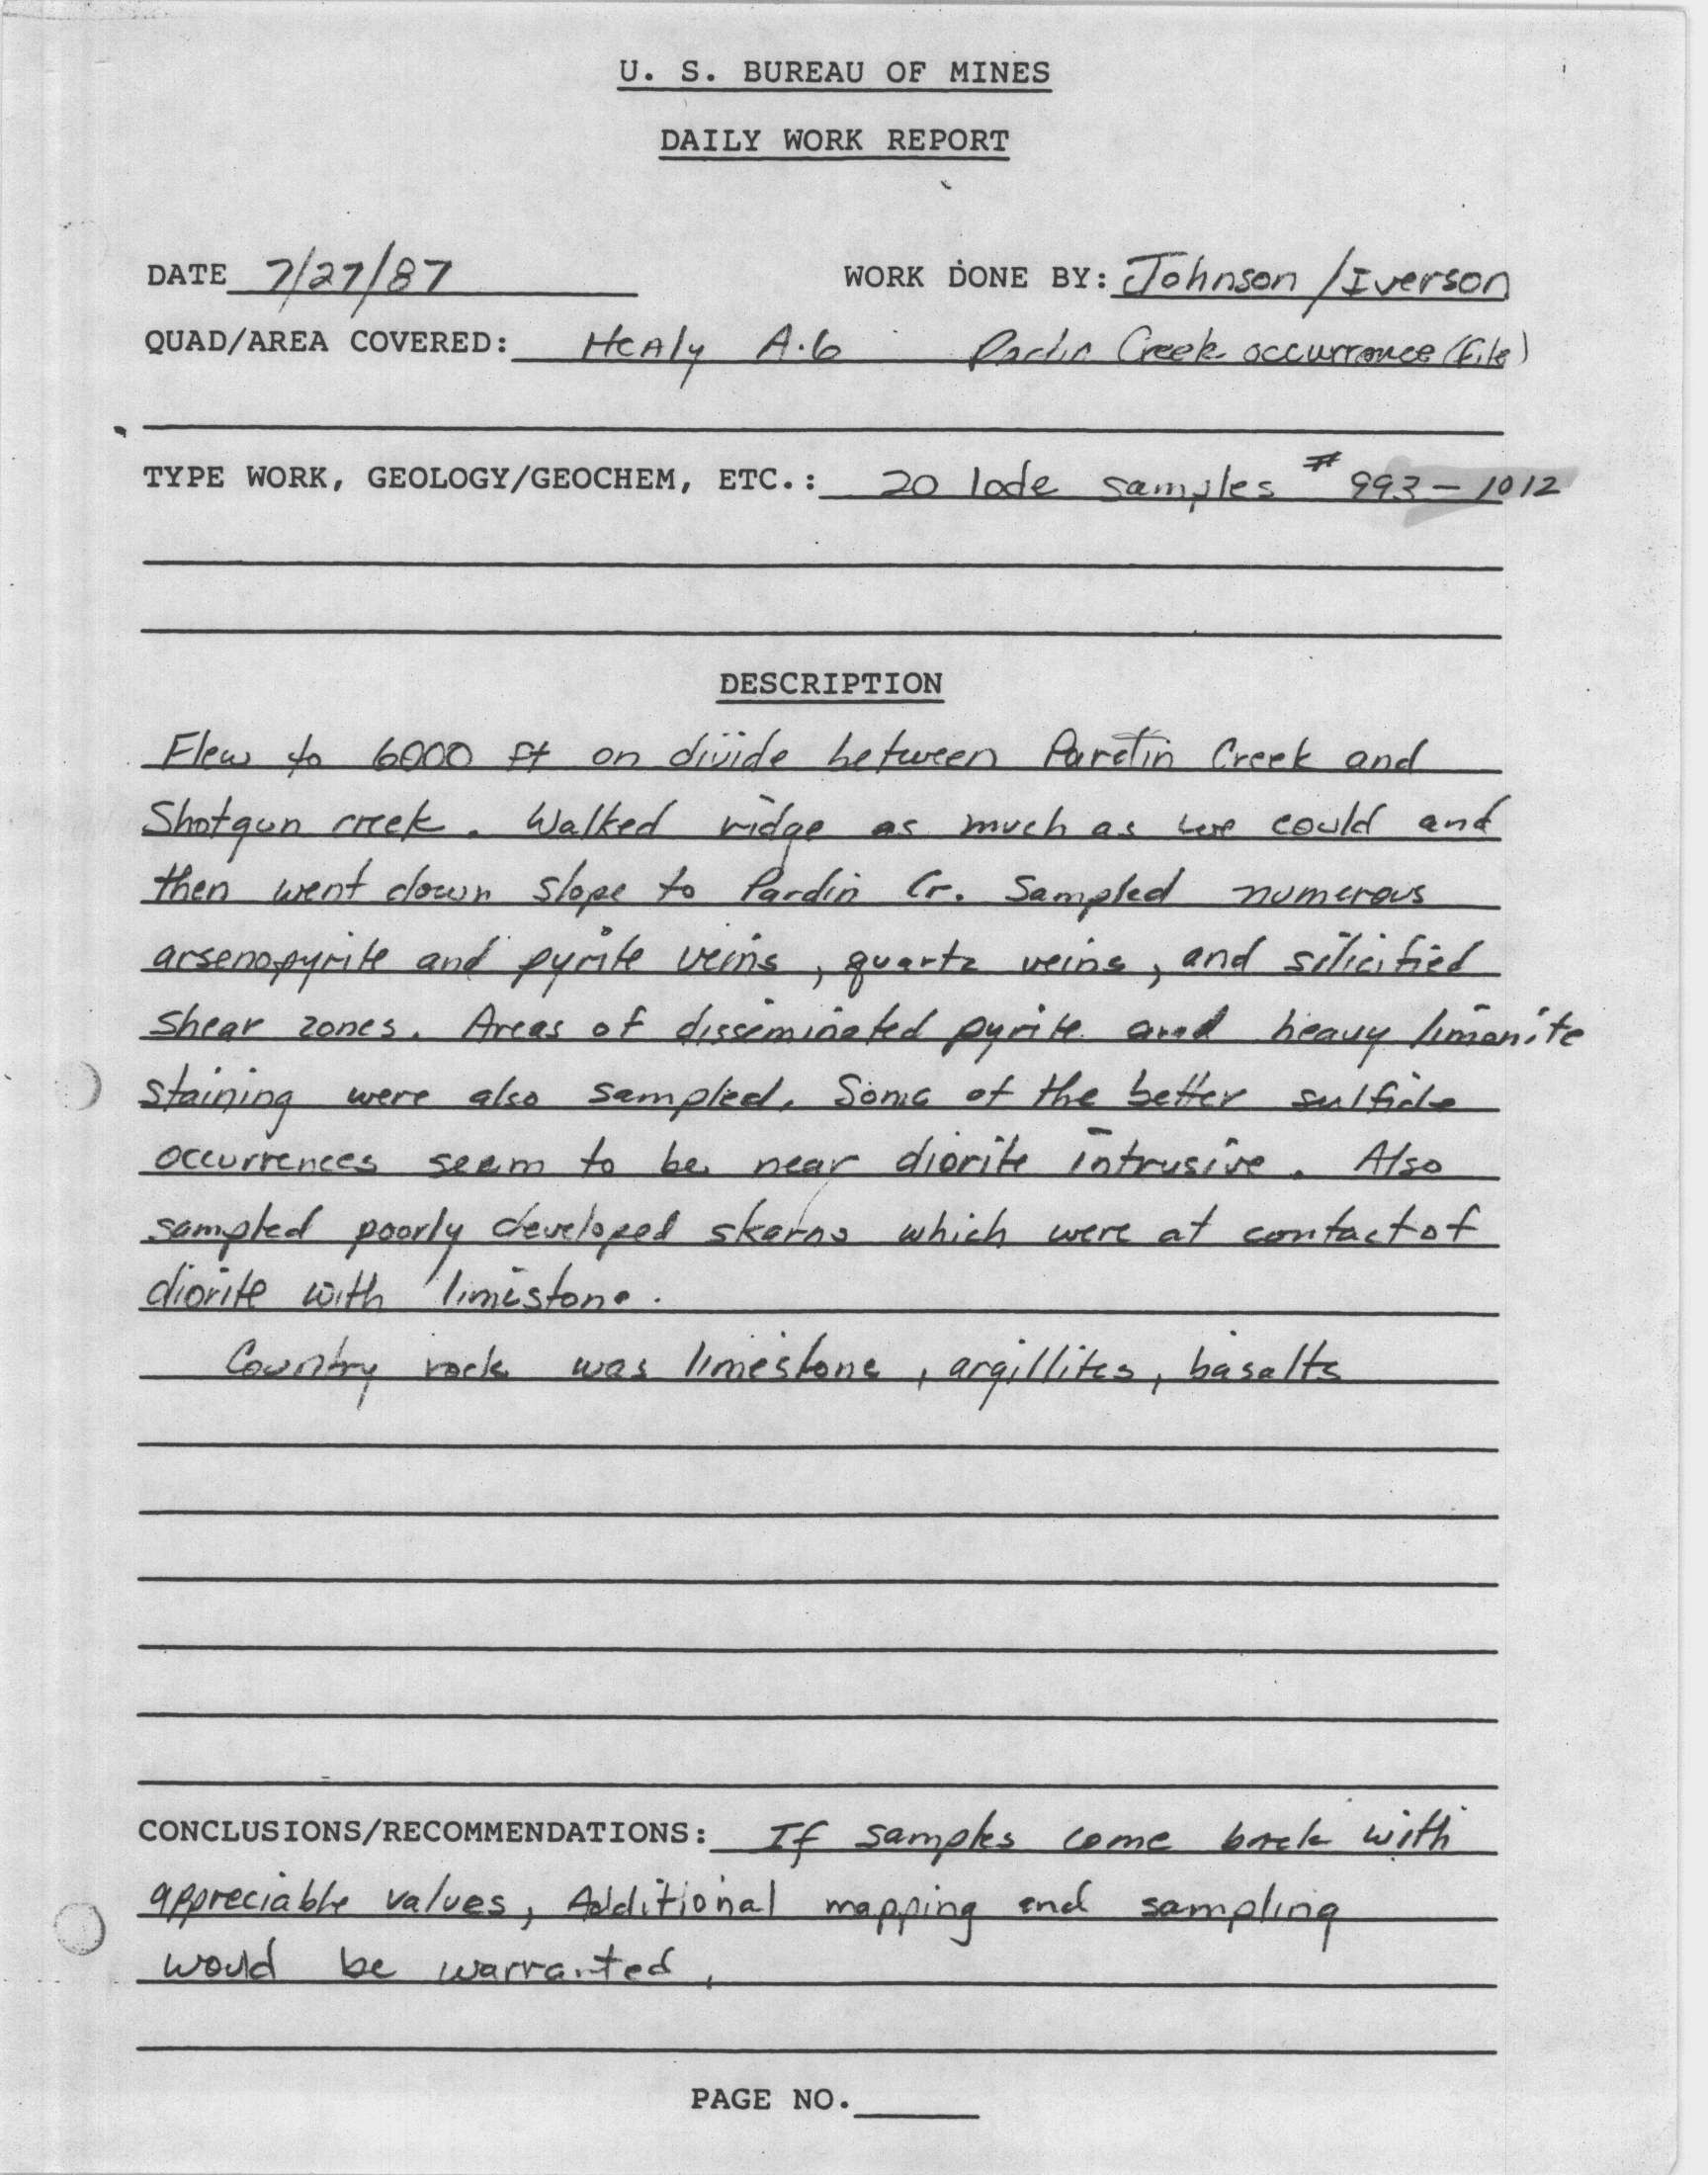 U. S. BUREAU OF MINES
DAILY WORK REPORT
DATE 7/27/87 WORK DONE BY: Johnson / Iverson
QUAD/AREA COVERED: Healy A-6 Pardin Creek occurrance (File)
TYPE WORK, GEOLOGY/GEOCHEM, ETC.: 20 lode samples # 993 - 1012
DESCRIPTION
Flew to 6000 ft on divide between Creek and
Shotgun creek. Walked ridge as much as we could and
then went down slope to Pardin Cr. Sampled numerous
arsenopyrite and pyrite veins, quartz veins, and silicified
shear zones. Areas of disseminated pyrite and heavy limonite
staining were also sampled. Some of the better sulfide
occurrences seem to be near diorite intrusive. Also
sampled poorly developed skarns which were at contact of
diorite with limestone.
Country rock was limestone, argillites, basalts
CONCLUSIONS/RECOMMENDATIONS: If samples come back with
appreciable values, Additional mapping and sampling
would be warranted.
PAGE NO.